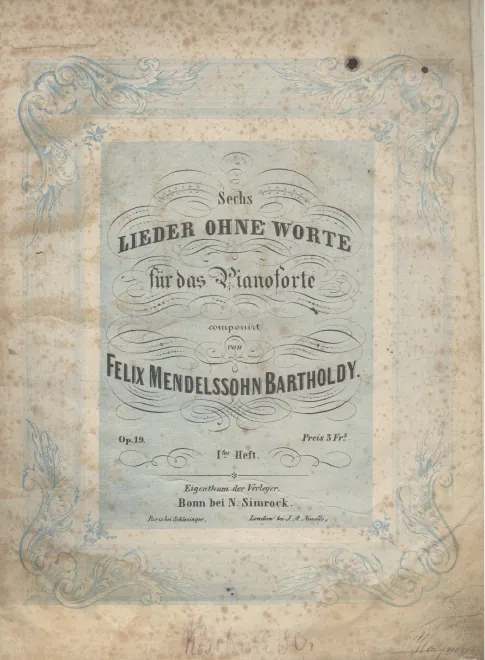 Sechs
LIEDER OHNE WORTE
für das Pianoforte
componirt
von
FELIX MENDELSSOHN BARTHOLDY.
Op. 19. Preis 3 Frs.
Ites Heft.
Eigenthum der Verleger.
Bonn bei N. Simrock.
Paris bei Schlesinger. London bei J. A. Novello.